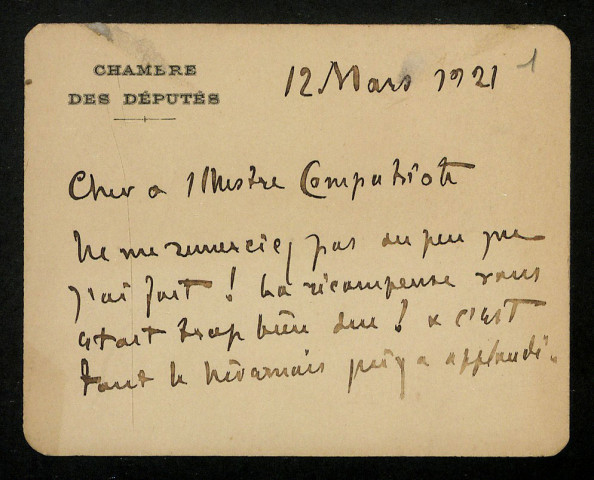 CHAMBRE
DES DÉPUTÉS
12 Mars 1921
1
Cher & Illustre Compatriote
Ne me remerciez pas du peu que
j'ai fait ! La récompense vous
était trop bien due ! & c'est
tout le Nivernais qui y a applaudi.